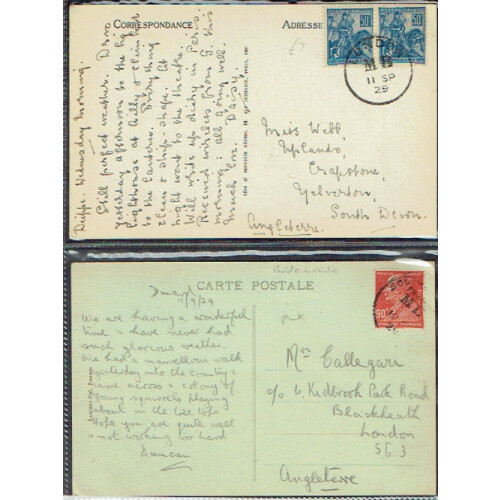 CORRESPONDANCE
ADRESSE
£7
Dieppe. Wednesday Morning.
Still perfect weather. Drove
yesterday afternoon to the big
lighthouse at Ailly & climbed
to the lantern. Everything
clean & ship-shape. At
night went to the theatre.
Will write up diary in Paris.
Received wireless from G. this
morning: all going well.
Much love. Daisy.
50
50
LONDON
M B
11 SP
29
Miss Webb,
Uplands,
Crapstone,
Yelverton,
South Devon.
Angleterre.
CARTE POSTALE
11/9/29
We are having a wonderful
time & have never had
such glorious weather.
We had a marvellous walk
yesterday into the country &
came across a colony of
young squirrels playing
about in the tree tops.
Hope you are quite well
& not working too hard
Duncan
90
M B
Mrs Callegari
c/o 6, Kidbrook Park Road
Blackheath
London
S.E. 3
Angleterre